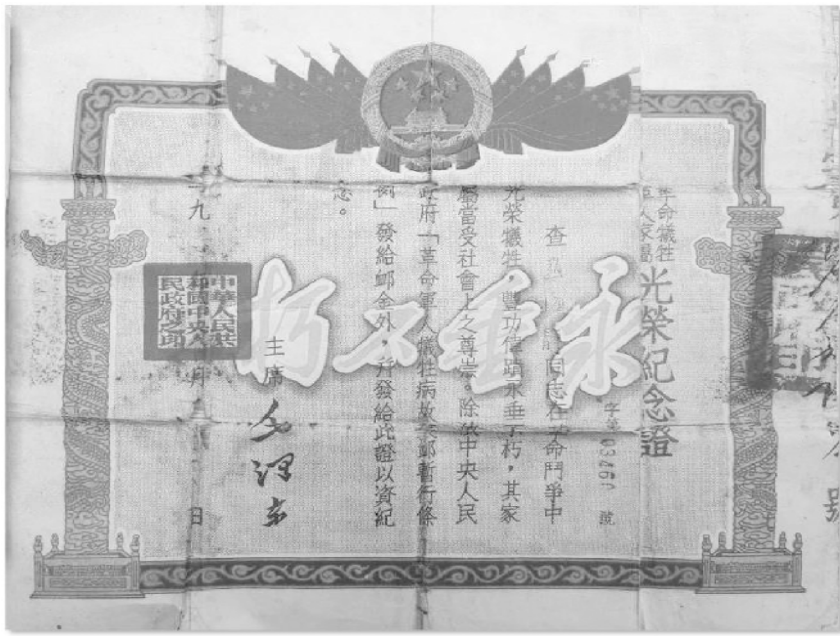 革命犧牲
軍人家屬
光榮紀念證
字第 號
查 同志在革命鬥爭中
光榮犧牲,豐功偉蹟永垂不朽,其家
屬當受社會上之尊崇。除依中央人民
政府「革命軍人犧牲病故褒卹暫行條
例」發給卹金外,并發給此證以資紀
念。
永垂不朽
主席
毛澤東
中華人民共
和國中央人
民政府之印
九 月 日